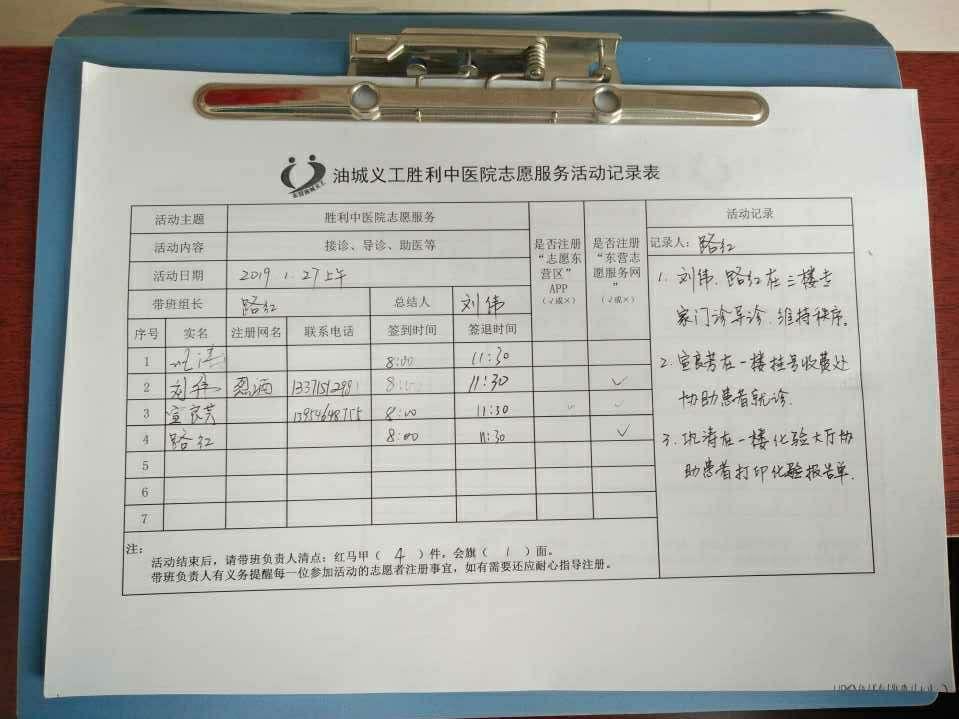 油城义工胜利中医院志愿服务活动记录表
活动主题 胜利中医院志愿服务
活动内容 接诊、导诊、助医等
活动日期 2019.1.27上午
带班组长 路红 总结人 刘伟
序号 实名 注册网名 联系电话 签到时间 签退时间
是否注册“志愿东营区”APP（√或×）
是否注册“东营志愿服务网”（√或×）
1 8:00 11:30
2 刘伟 13371512991 8:00 11:30 √
3 宣良芳 13954648755 8:00 11:30
4 路红 8:00 11:30 √
5
6
7
活动记录
记录人：路红
1. 刘伟、路红在三楼专
家门诊导诊、维持秩序。
2. 宣良芳在一楼挂号收费处
协助患者就诊.
3. 清在一楼化验大厅协
助患者打印化验报告单.
注：
活动结束后，请带班负责人清点：红马甲（ 4 ）件，会旗（ 1 ）面。
带班负责人有义务提醒每一位参加活动的志愿者注册事宜，如有需要还应耐心指导注册。